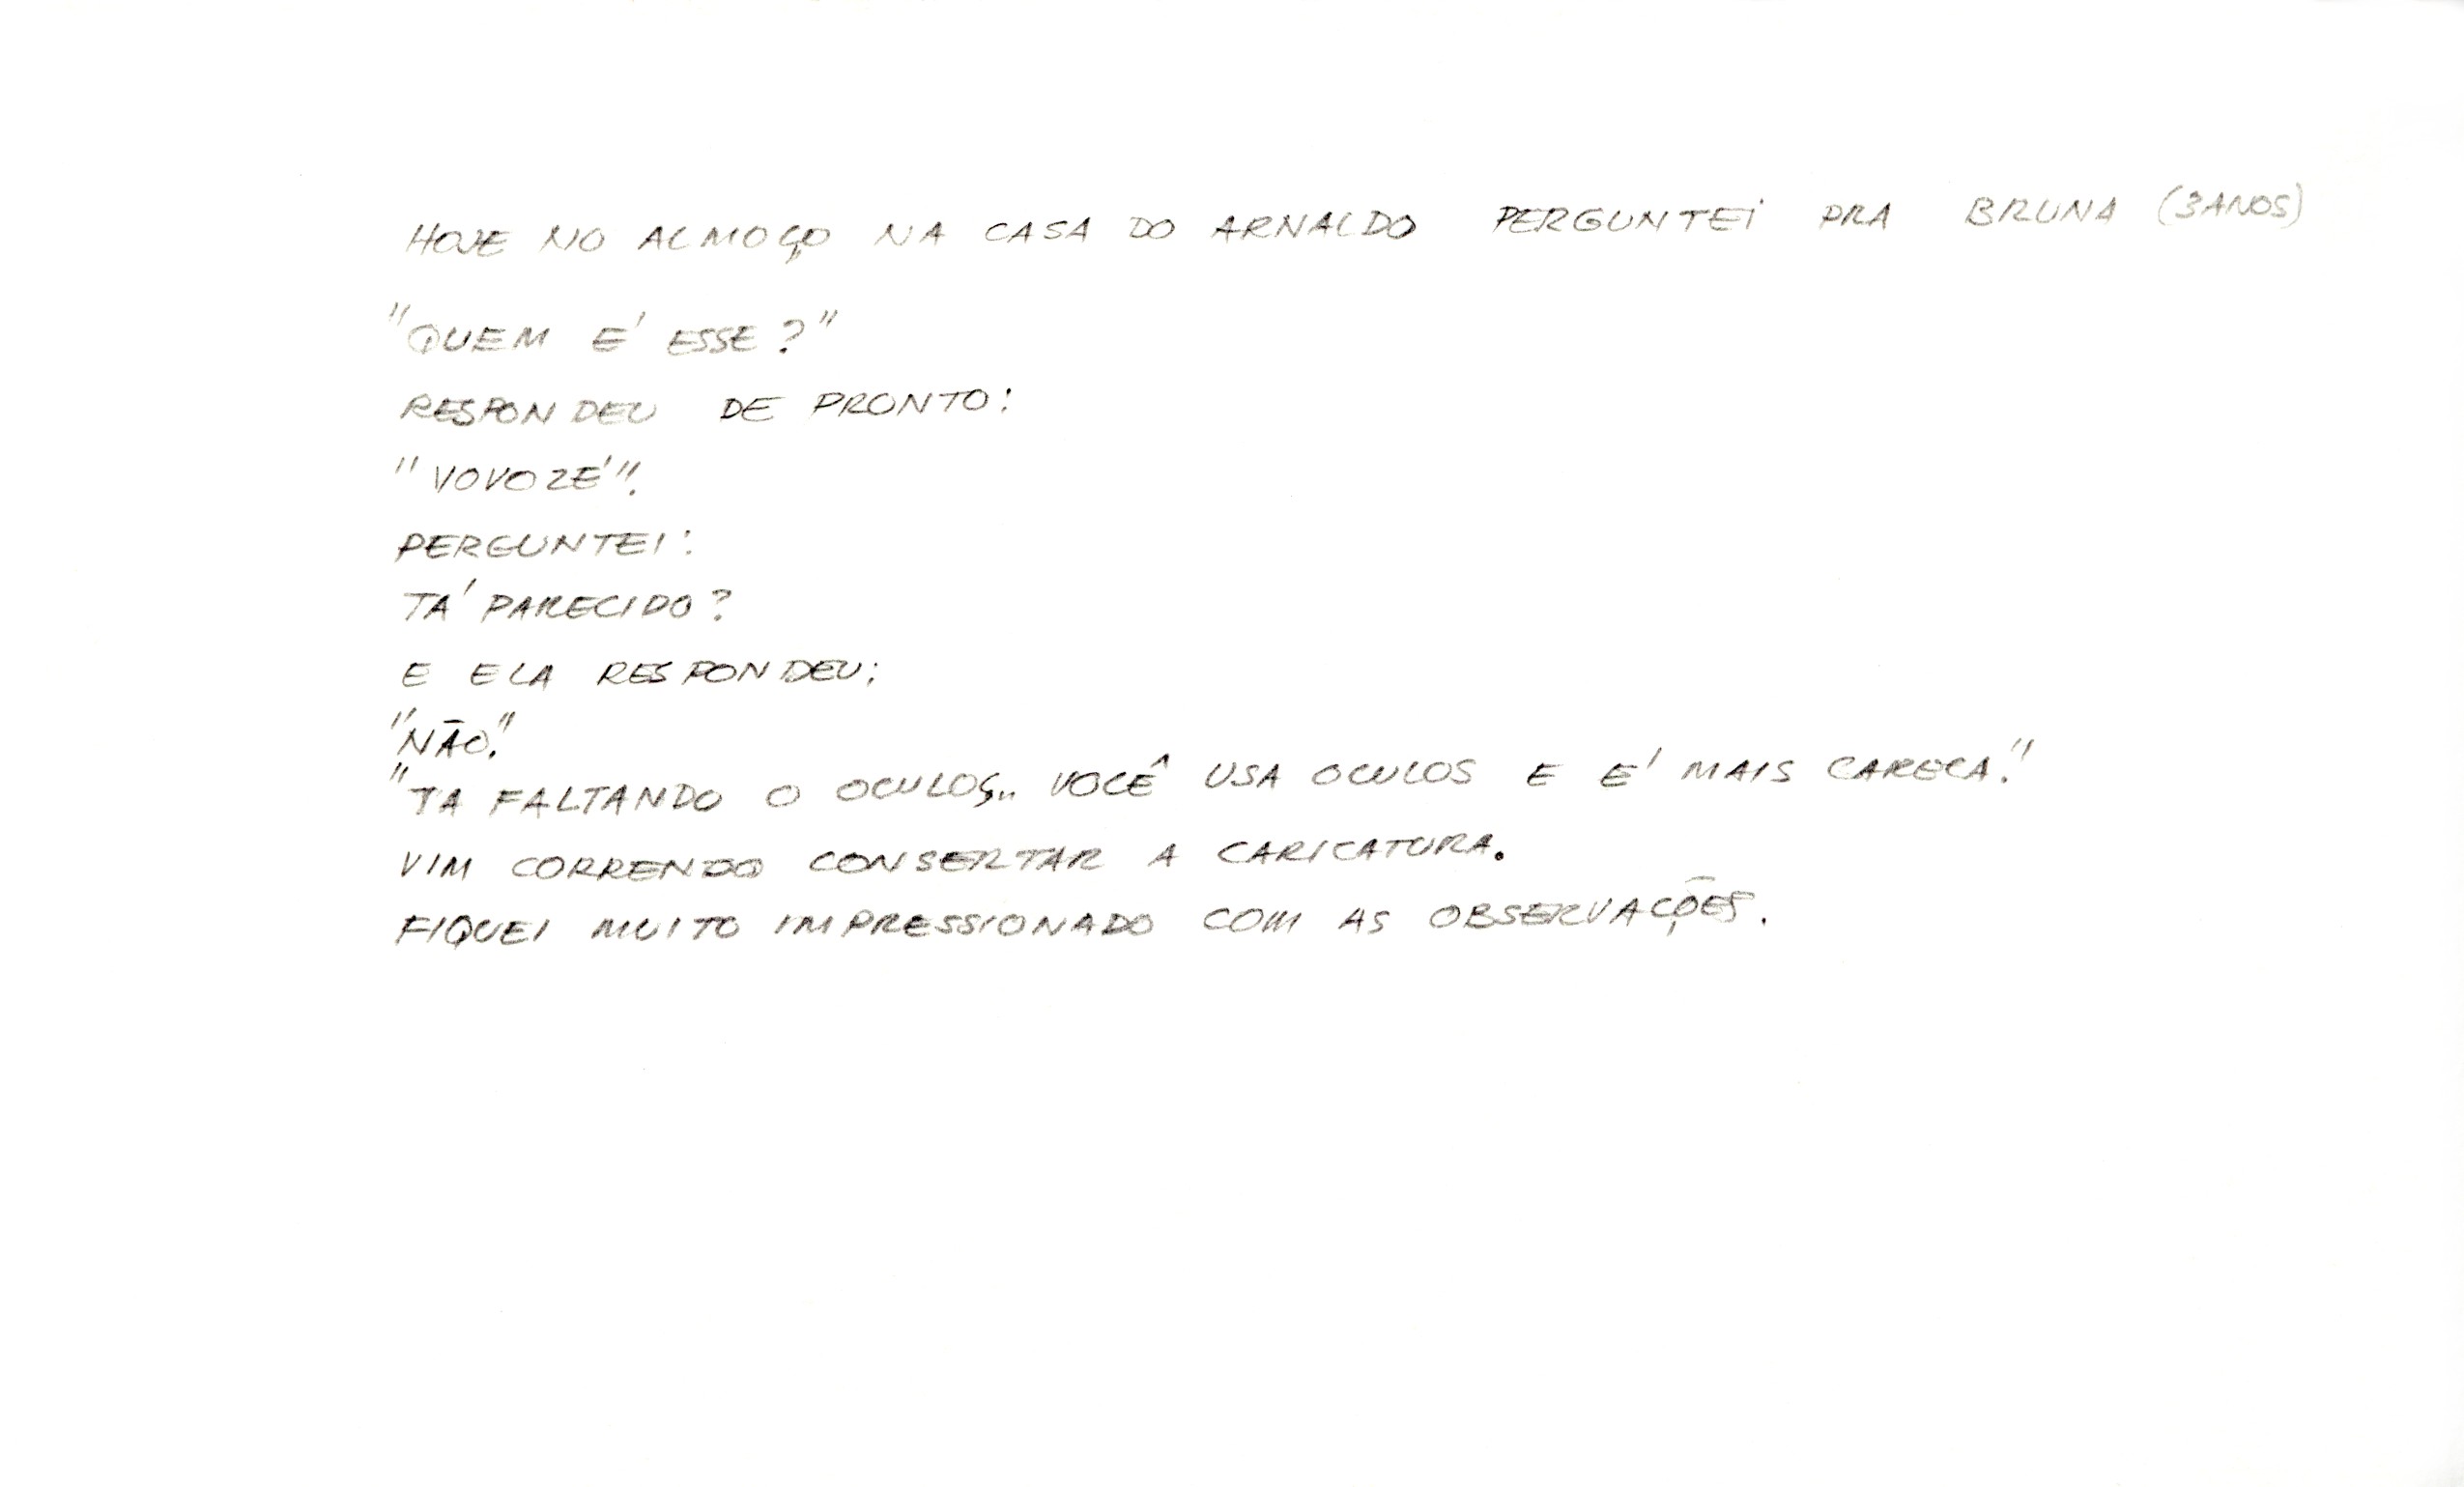 HOJE NO ALMOÇO NA CASA DO ARNALDO PERGUNTEI PRA BRUNA (3 ANOS)
"QUEM É ESSE?"
RESPONDEU DE PRONTO:
"VOVOZÉ".
PERGUNTEI:
TÁ PARECIDO?
E ELA RESPONDEU:
"NÃO."
"TA FALTANDO O OCULOS... VOCÊ USA OCULOS E É MAIS CARECA."
VIM CORRENDO CONSERTAR A CARICATURA.
FIQUEI MUITO IMPRESSIONADO COM AS OBSERVAÇÕES.